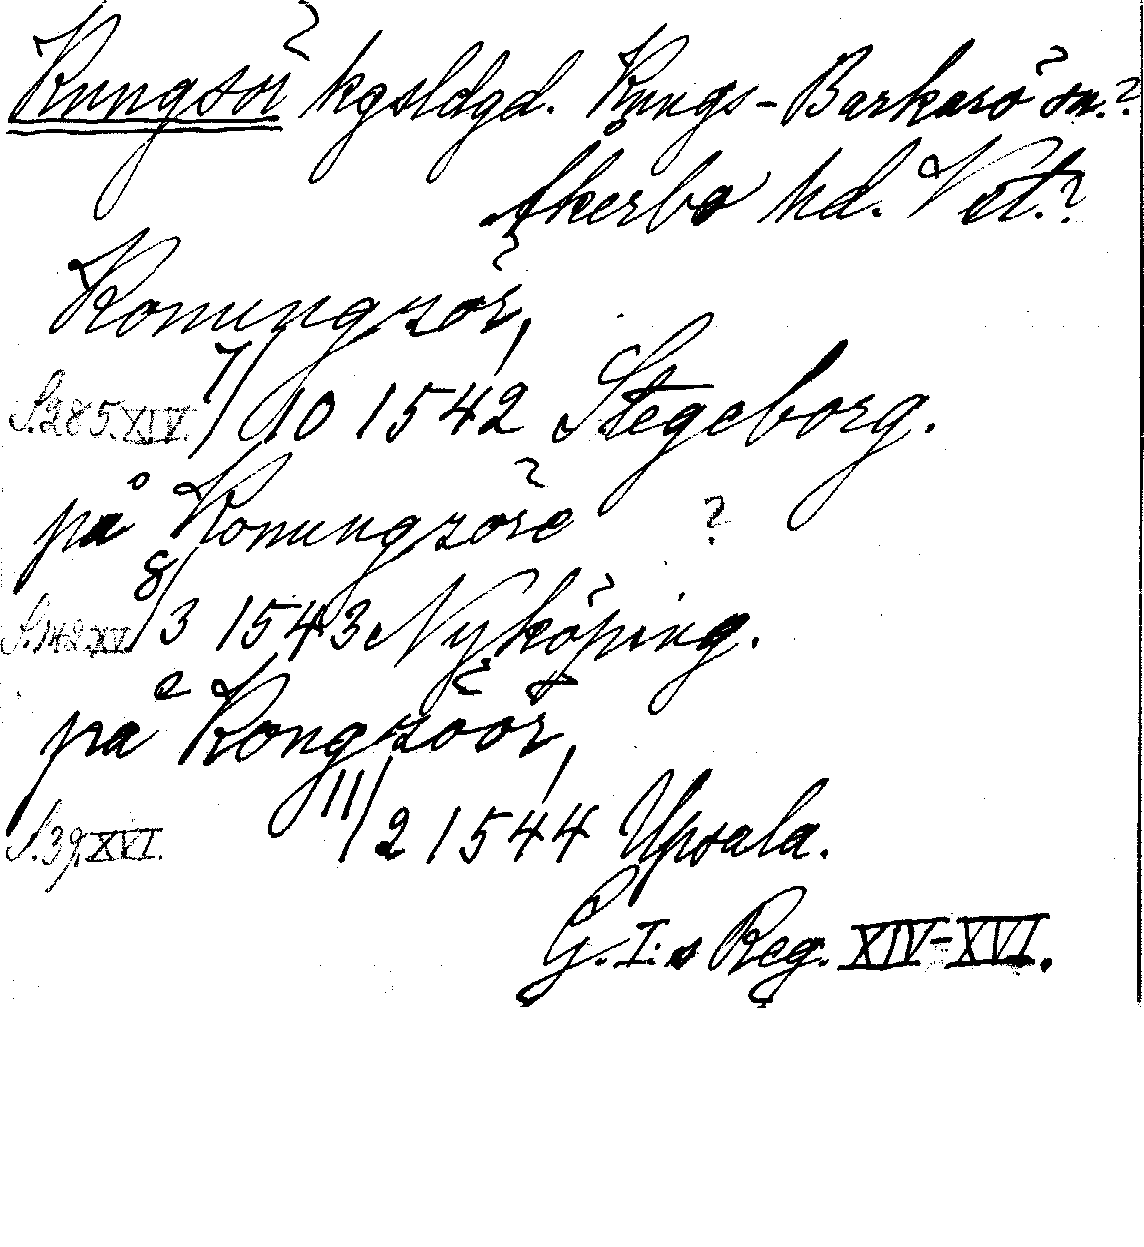 Kungsör kgsldgd. Kungs-Barkarö sn.?
Åkerbo hd. Vst.?
Konungzör,
S. 285. XIV. 7/10 1542 Stegeborg.
på Konungzöre ?
S. 142. XV. 8/3 1543 Nyköping.
på Kongzöör,
S. 39. XVI. 11/2 1544 Upsala.
G. I:s Reg. XIV-XVI.